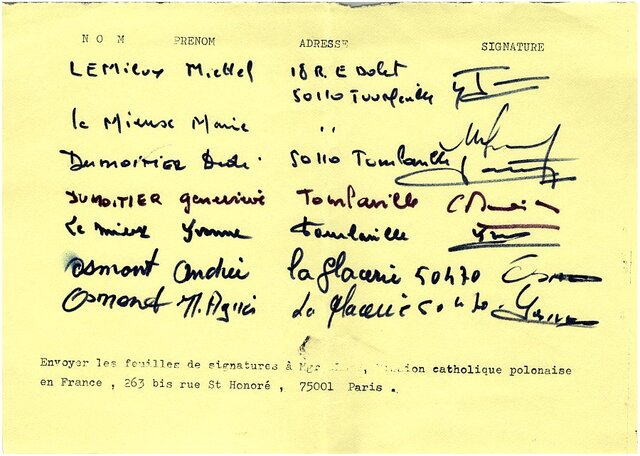 N O M PRENOM ADRESSE SIGNATURE
LEMIEUX Michel 18 R. E Dolet
50110 Tourlaville
le Mieux Marie "
DUMOITIER Dédé 50110 Tourlaville
DUMOITIER geneviève Tourlaville
Le mieux Yvonne tourlaville
Osmont André la glacerie 50470
Osmont M. Agnès La glacerie 50470
Envoyer les feuilles de signatures à Mgr , Mission catholique polonaise
en France , 263 bis rue St Honoré , 75001 Paris .